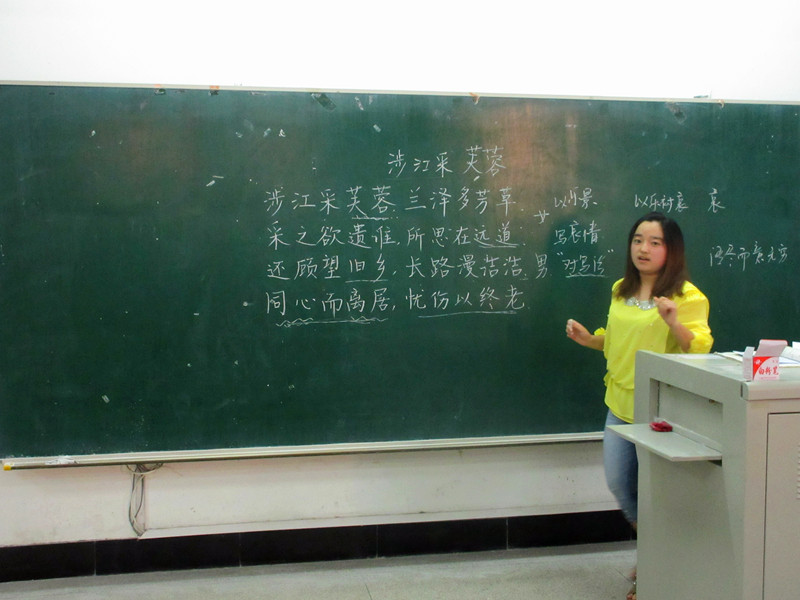 涉江采芙蓉
涉江采芙蓉,兰泽多芳草.
采之欲遗谁,所思在远道.
还顾望旧乡,长路漫浩浩.
同心而离居,忧伤以终老.
女
男
以乐景
写哀情
"对写法"
以乐衬哀
哀